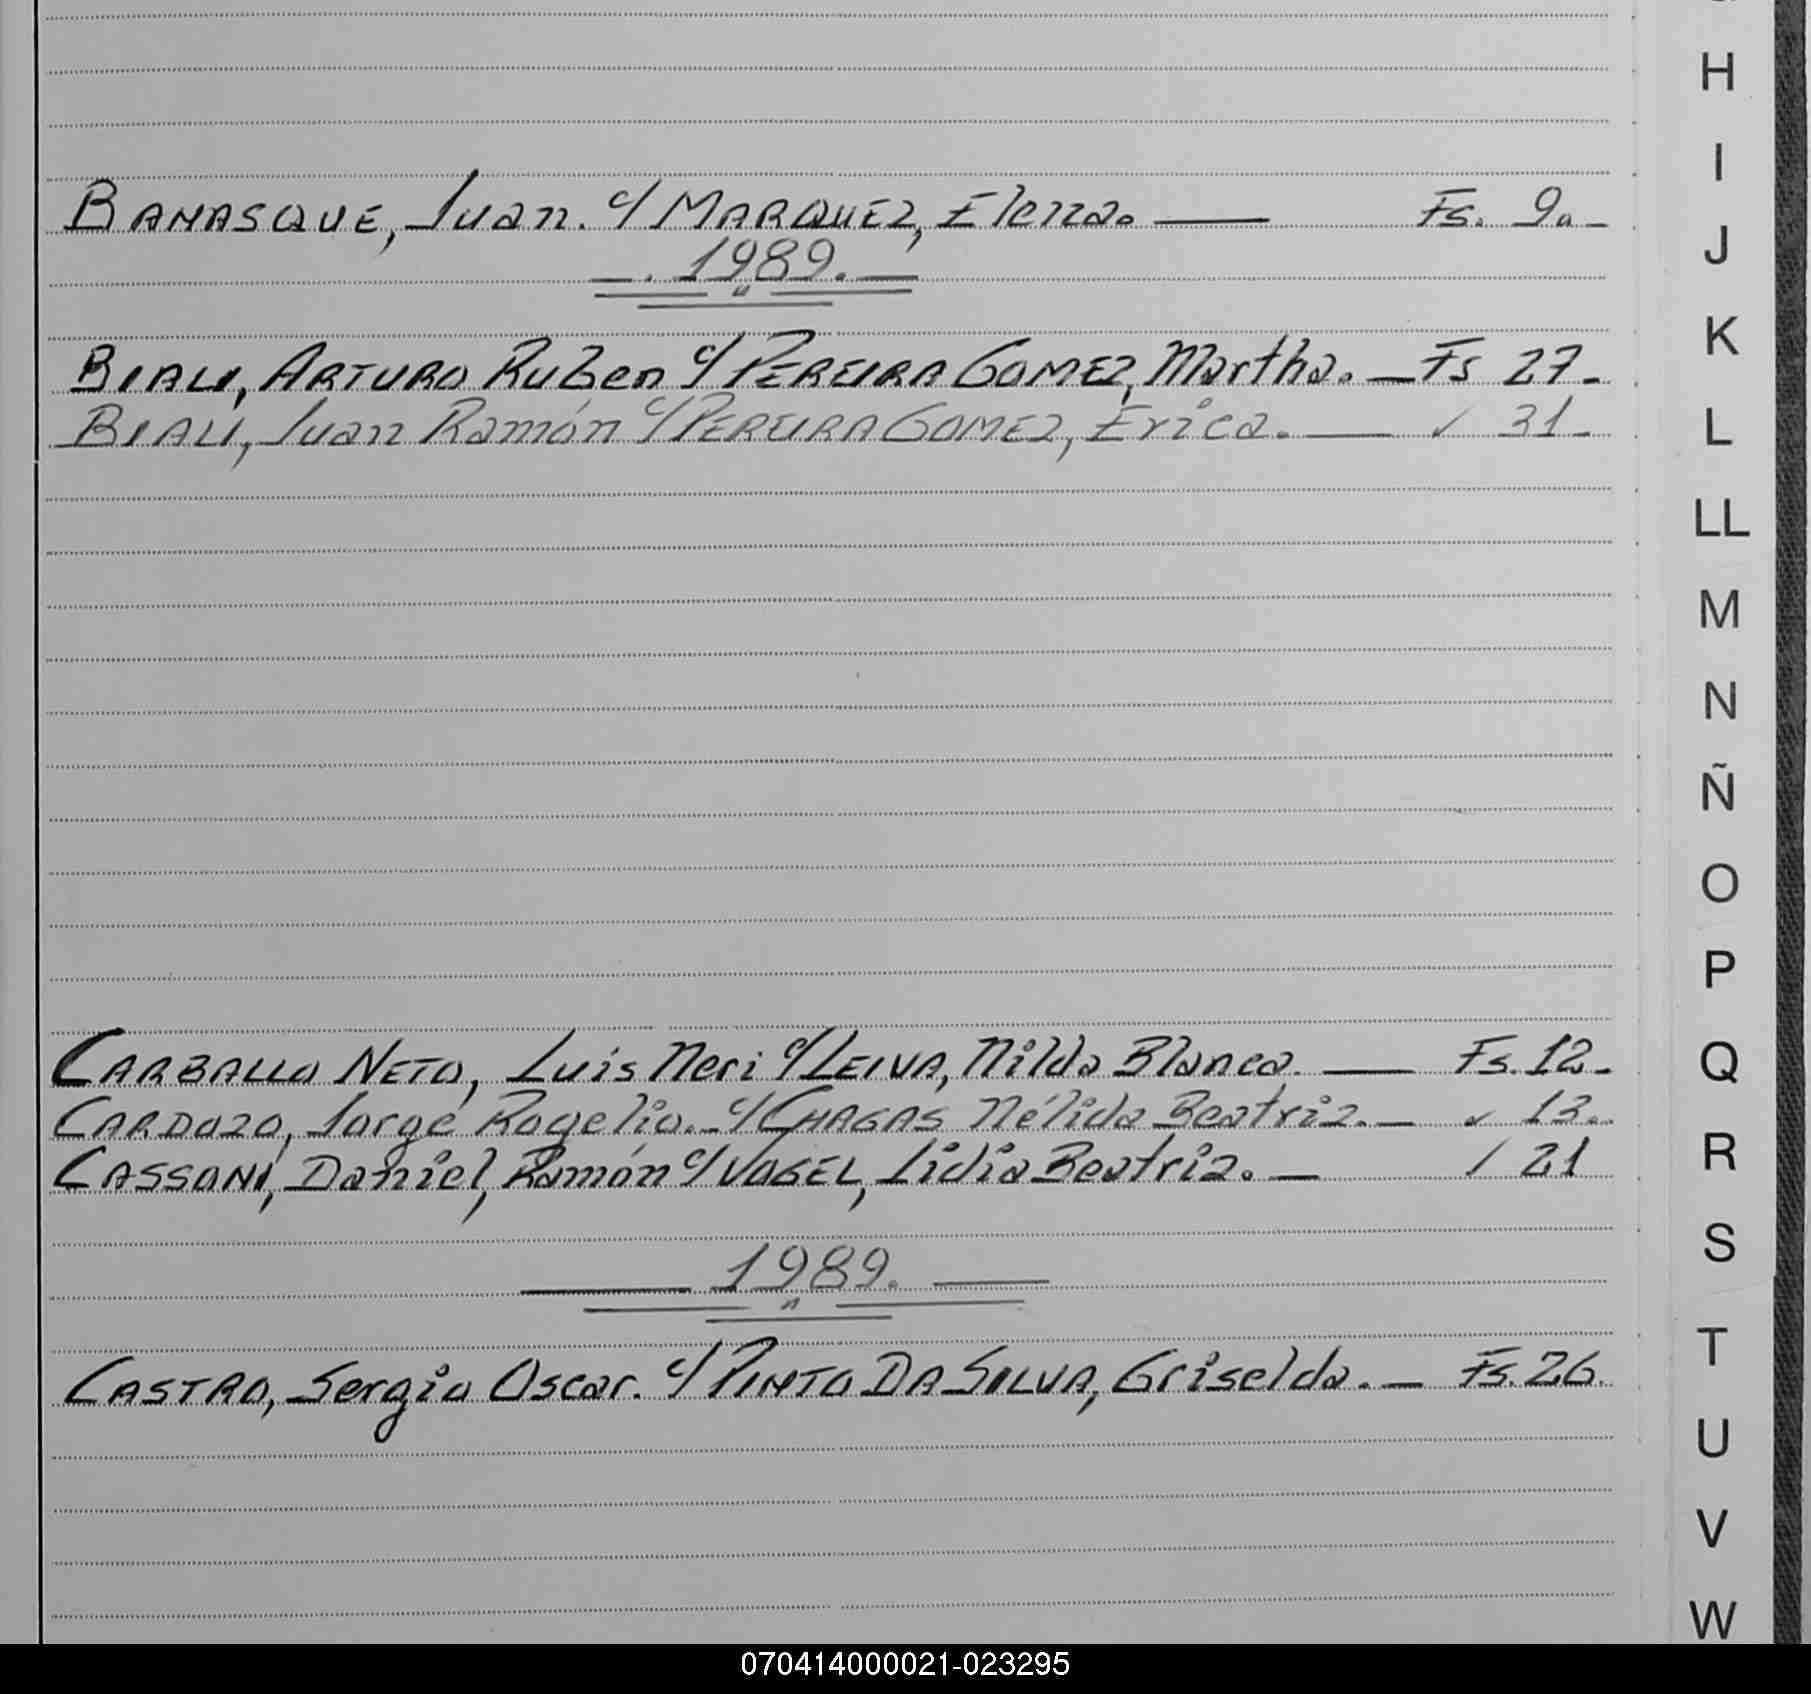 BAMASQUE, Juan. c/ MARQUEZ, Elena. — Fs. 9.-
—. 1989. —
"
BIALI, ARTURO Ruben c/ PEREIRA GOMEZ, Martha. — Fs 27.-
BIALI, Juan Ramón c/ PEREIRA GOMEZ, Erica. — ✓ 31.-
CARBALLO NETO, Luis Neri c/ LEIVA, Nilda Blanca. — Fs. 12.-
CARDOZO, Jorge Rogelio. - c/ CHAGAS Nélida Beatriz. — ✓ 13.-
CASSONI, Daniel, Ramón c/ VOGEL, Lidia Beatriz. — / 21
— 1989. —
"
CASTRO, Sergio Oscar. c/ PINTO DA SILVA, Griselda. — Fs. 26.
H
I
J
K
L
LL
M
N
Ñ
O
P
Q
R
S
T
U
V
W
070414000021-023295